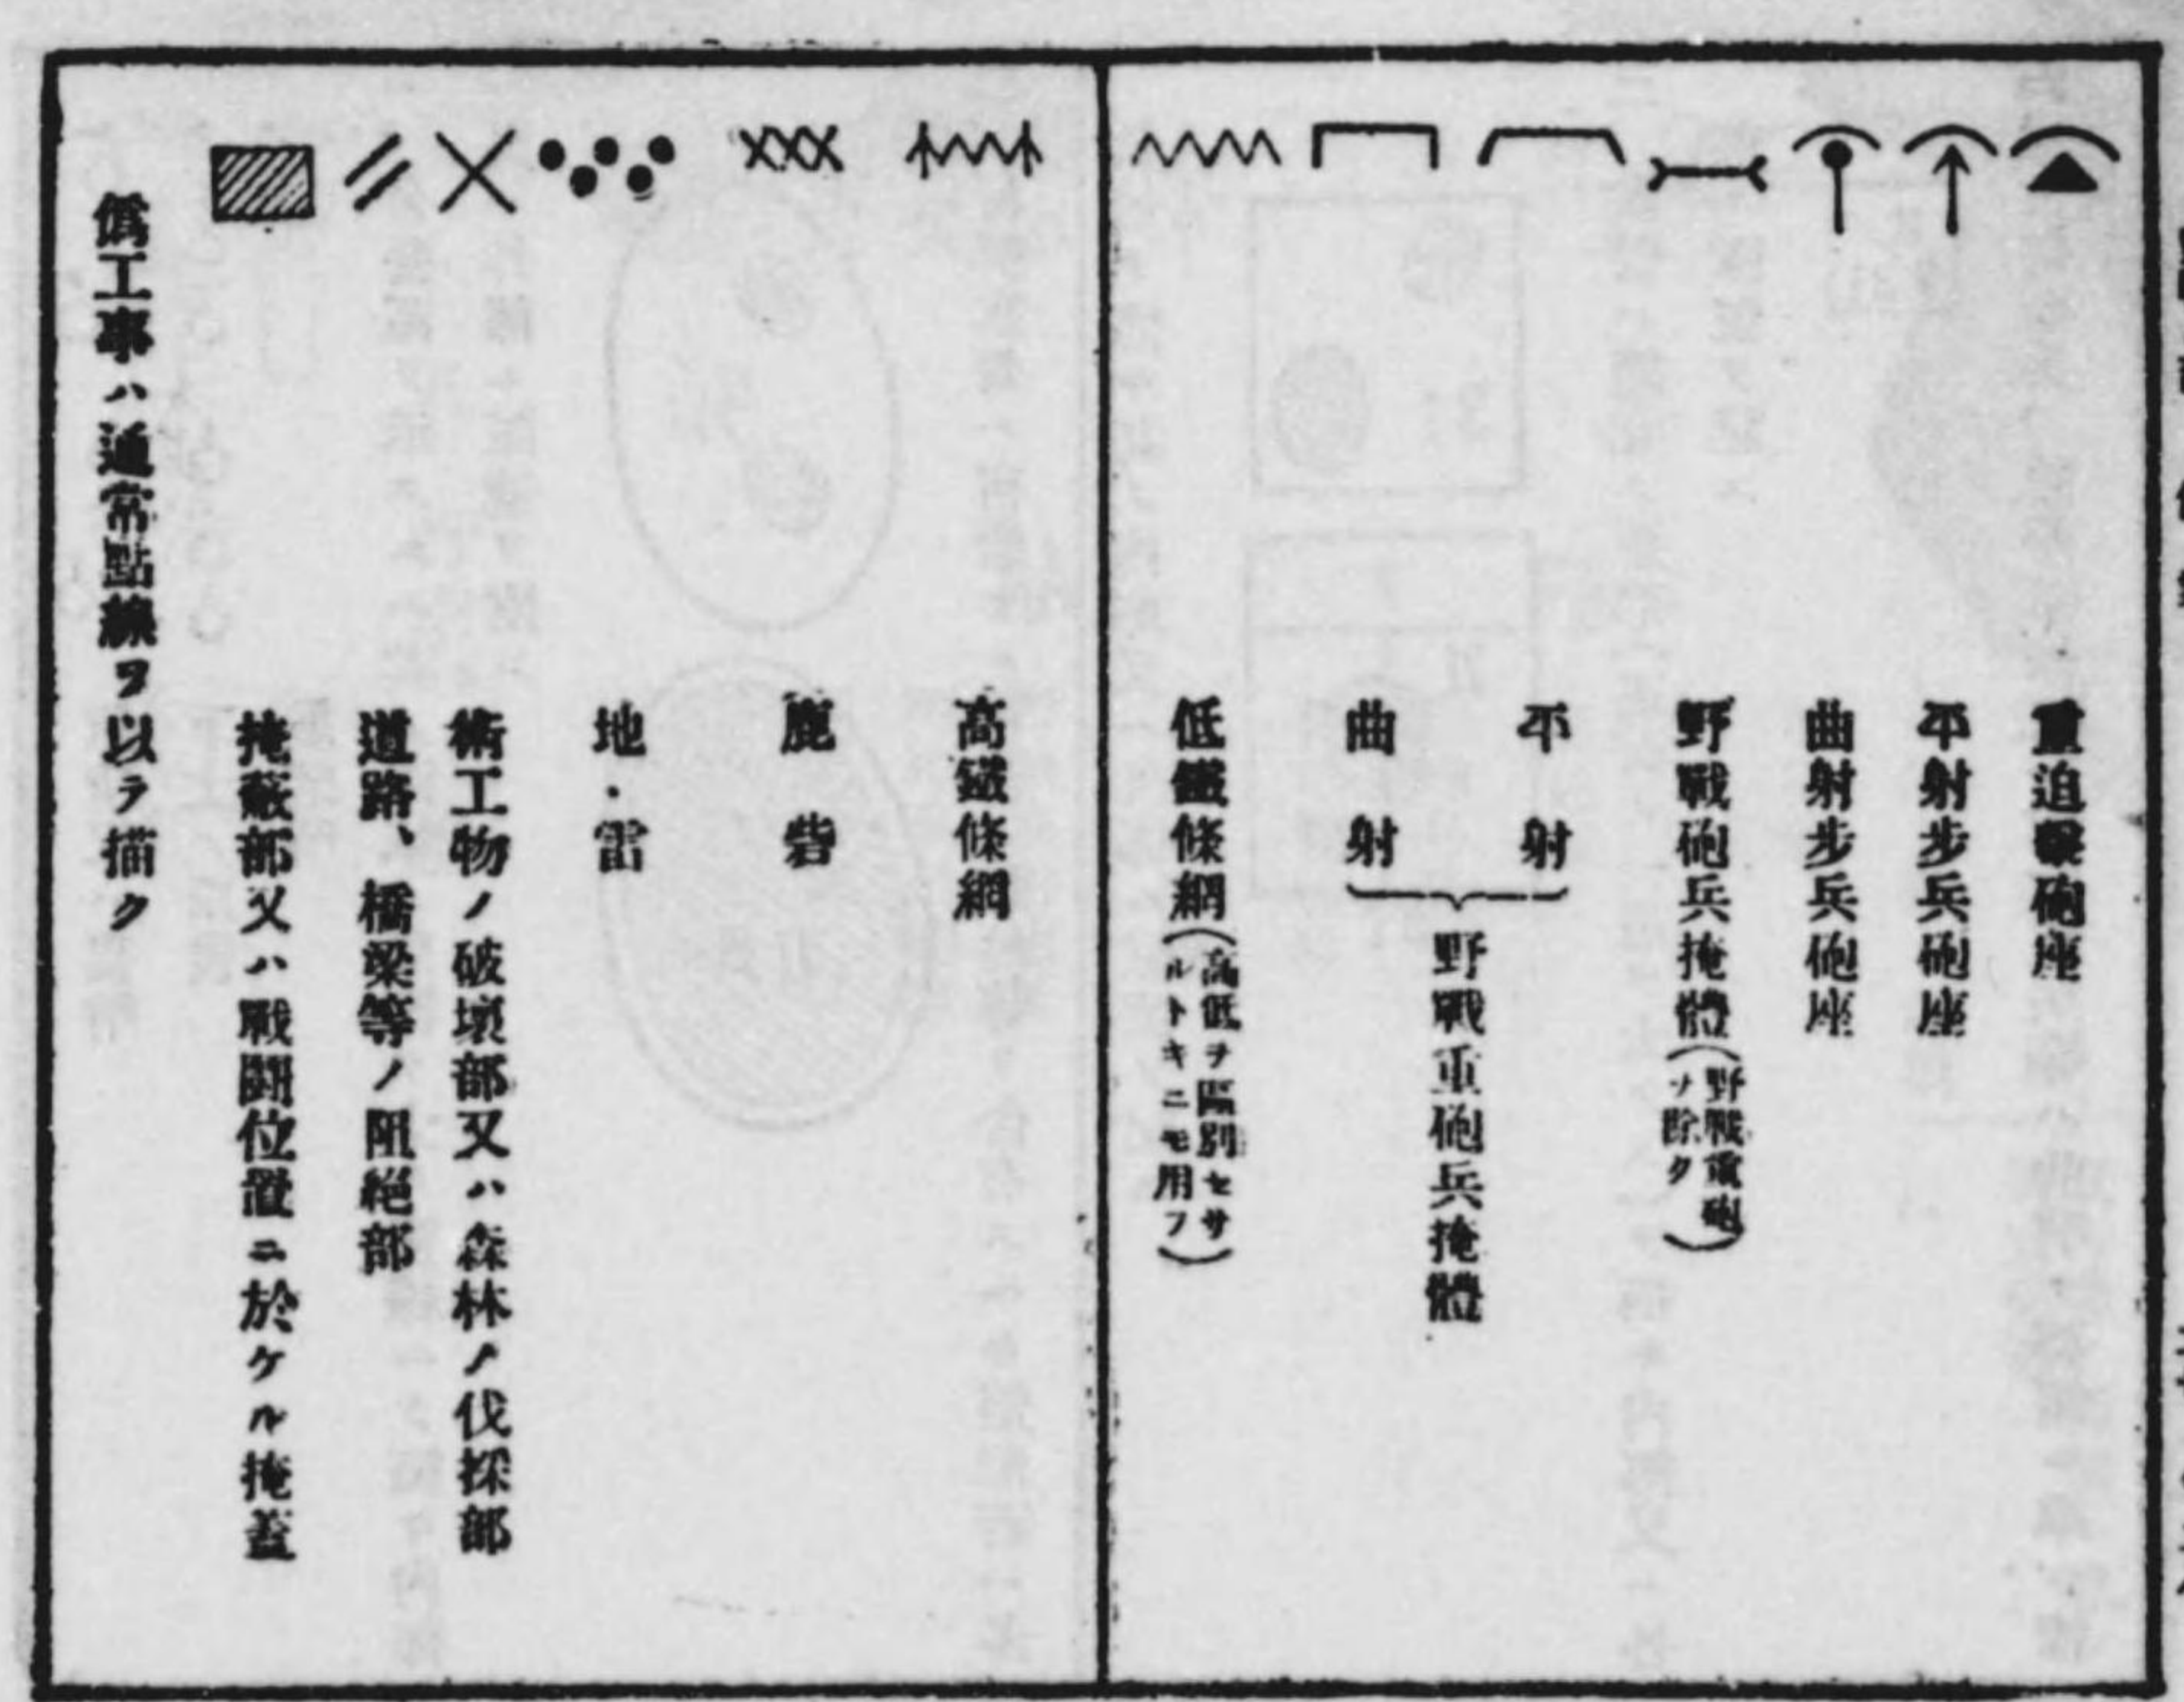 重迫擊砲座
平射步兵砲座
曲射步兵砲座
野戰砲兵掩體(野戰重砲ヲ除ク)
平射
曲射
野戰重砲兵掩體
低鐵條網(高低ヲ區別セサルトキニモ用フ)
高鐵條網
鹿砦
地・雷
術工物ノ破壞部又ハ森林ノ伐採部
道路、橋梁等ノ阻絕部
掩蔽部又ハ戰鬪位置ニ於ケル掩蓋
僞工事ハ通常點線ヲ以テ描ク